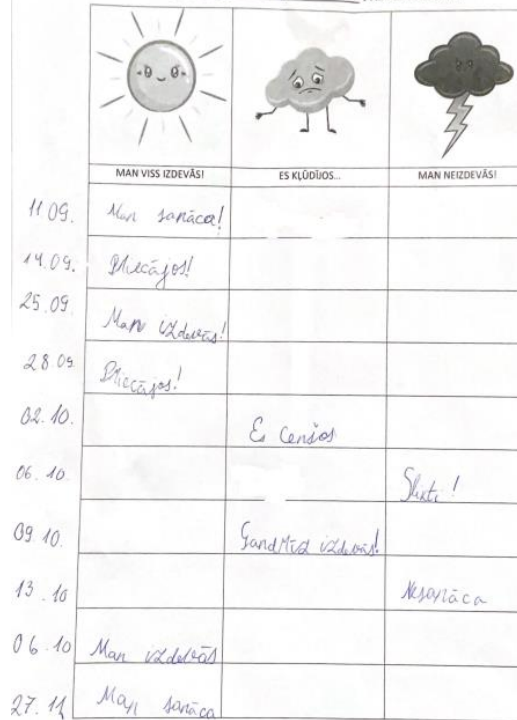 MAN VISS IZDEVĀS! ES KĻŪDĪJOS... MAN NEIZDEVĀS!
11.09. Man sanāca!
14.09. Priecājos!
25.09. Man izdevās!
28.09 Priecājos!
02.10. Es cenšos
06.10 Slikti!
09.10. Gandrīz izdevās!
13.10 Nesanāca
06.10 Man izdevās
27.11 Man sanāca